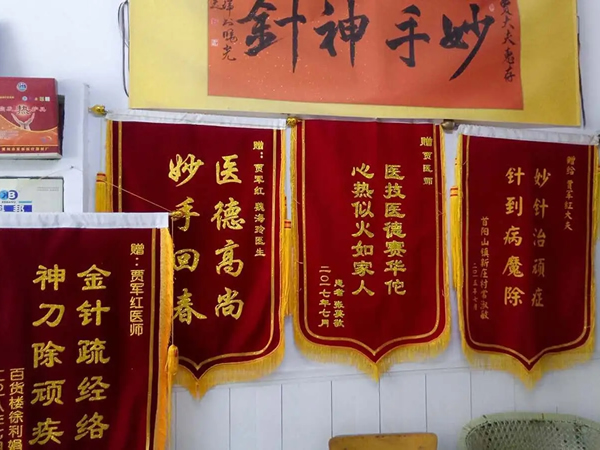 妙手神針
赠:贾军红医师
金针疏经络
神刀除顽疾
百货楼徐利娟
赠:贾军红 魏海玲医生
医德高尚
妙手回春
赠 贾医师
医技医德赛华佗
心热似火如家人
患者
二〇一七年七月
赠给 贾军红大夫
妙针治顽症
针到病魔除
首阳山镇新庄村